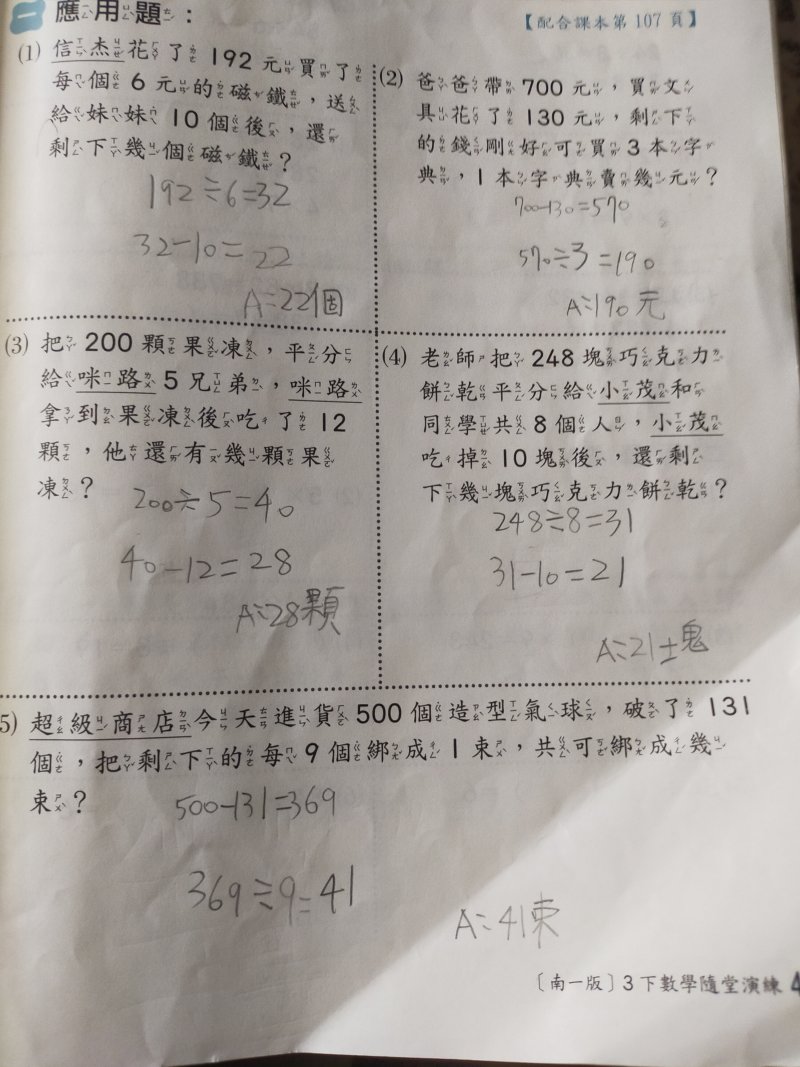 一 應用題：
【配合課本第 107 頁】
(1) 信杰花了 192 元買了
每個 6 元的磁鐵，送
給妹妹 10 個後，還
剩下幾個磁鐵？
192÷6=32
32-10=22
A:22個
(2) 爸爸帶 700 元，買文
具花了 130 元，剩下
的錢剛好可買 3 本字
典，1 本字典賣幾元？
700-130=570
570÷3=190
A:190元
(3) 把 200 顆果凍，平分
給咪路 5 兄弟，咪路
拿到果凍後吃了 12
顆，他還有幾顆果
凍？
200÷5=40
40-12=28
A:28顆
(4) 老師把 248 塊巧克力
餅乾平分給小茂和
同學共 8 個人，小茂
吃掉 10 塊後，還剩
下幾塊巧克力餅乾？
248÷8=31
31-10=21
A:21塊
5) 超級商店今天進貨 500 個造型氣球，破了 131
個，把剩下的每 9 個綁成 1 束，共可綁成幾
束？
500-131=369
369÷9=41
A:41束
〔南一版〕3 下數學隨堂演練 4